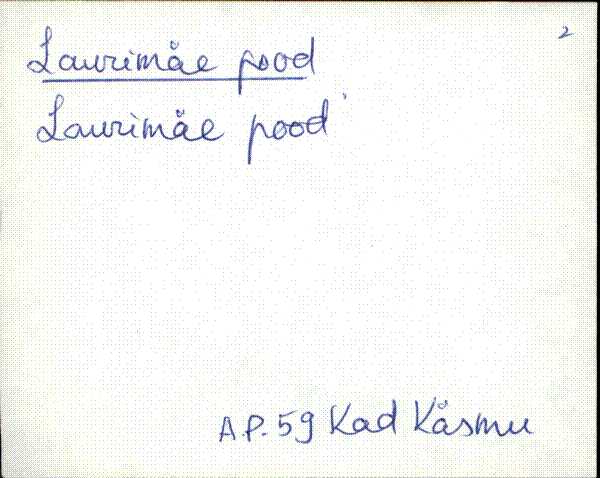 2
Laurimäe pood
Laurimäe pood'
A.P. 59 Kad Käsmu